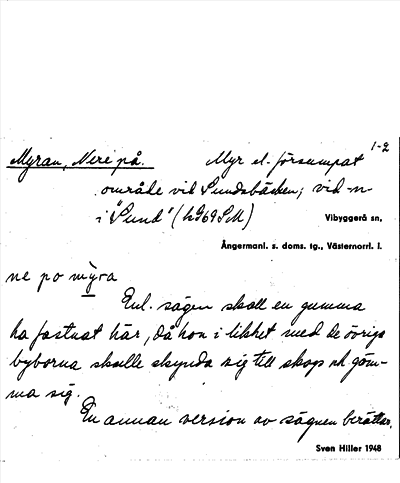 1-2
Myran, Nere på. Myr el. försumpat
område vid Sundsbäcken; vid -n-
i "Sund" (L969SM)
Vibyggerå sn,
Ångermanl. s. doms. tg., Västernorrl. l.
ne po myra
Enl. sägen skall en gumma
ha fastnat här, då hon i likhet med de övriga
byborna skulle skynda sig till skogs och göm-
ma sig.
En annan version av sägnen berättar,
Sven Hiller 1948